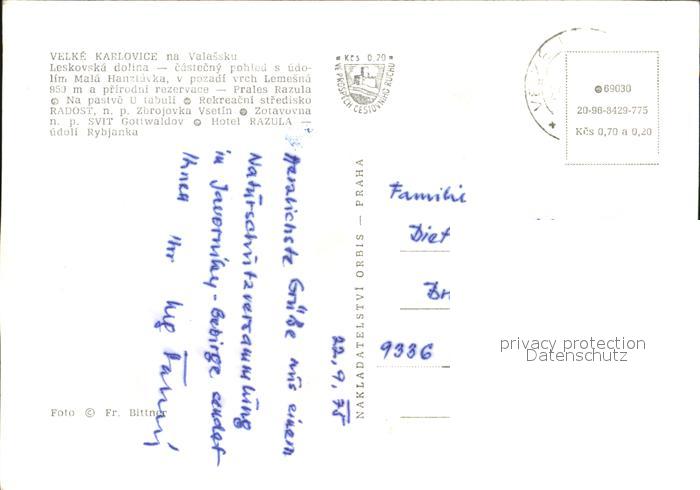 VELKÉ KARLOVICE na Valašsku
Leskovská dolina — částečný pohled s údo-
lím Malá Hanzlůvka, v pozadí vrch Lemešná
950 m a přírodní rezervace — Prales Razula
Na pastvě U tabulí Rekreační středisko
RADOST, n. p. Zbrojovka Vsetín Zotavovna
n. p. SVIT Gottwaldov Hotel RAZULA —
údolí Rybjanka
Kčs 0,20
VE PROSPĚCH CESTOVNÍHO RUCHU
69030
20-96-8429-775
Kčs 0,70 a 0,20
22. 9. 75
Herzlichste Grüße aus einem
Naturschutzversammlung
in Javorníky-Gebirge sendet
Ihnen Ihr Ing.
NAKLADATELSTVÍ ORBIS — PRAHA
Familie
Diet
9336
privacy protection
Datenschutz
Foto © Fr. Bittner